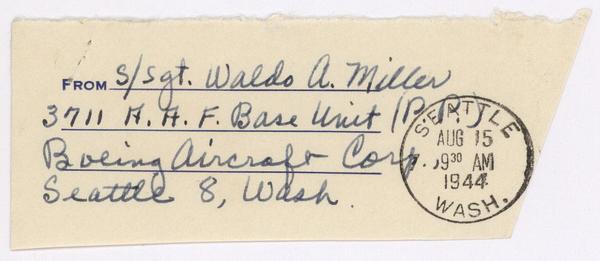 FROM S/Sgt. Waldo A. Miller
3711 A. A. F. Base Unit (P.P.)
Boeing Aircraft Corp.,
Seattle 8, Wash.
SEATTLE
AUG 15
9 30 AM
1944
WASH.